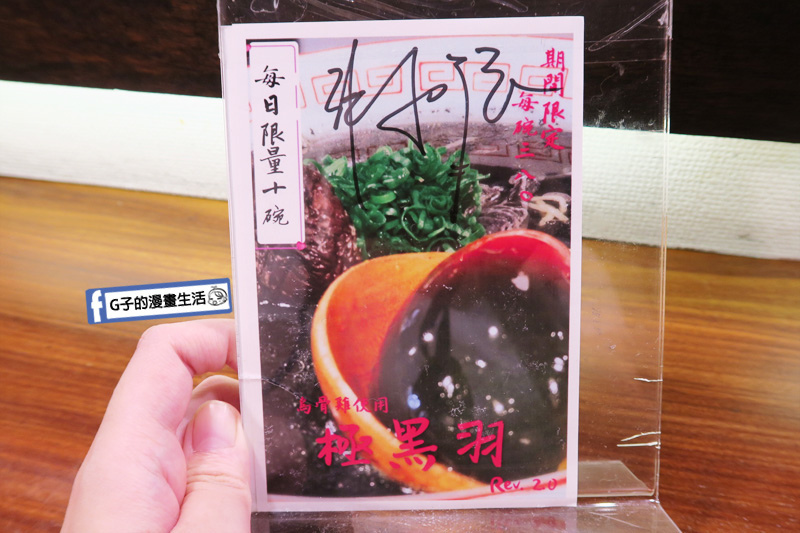 期間限定
每碗三八〇
每日限量十碗
G子的漫畫生活
烏骨雞使用
極黑羽
Rev. 2.0